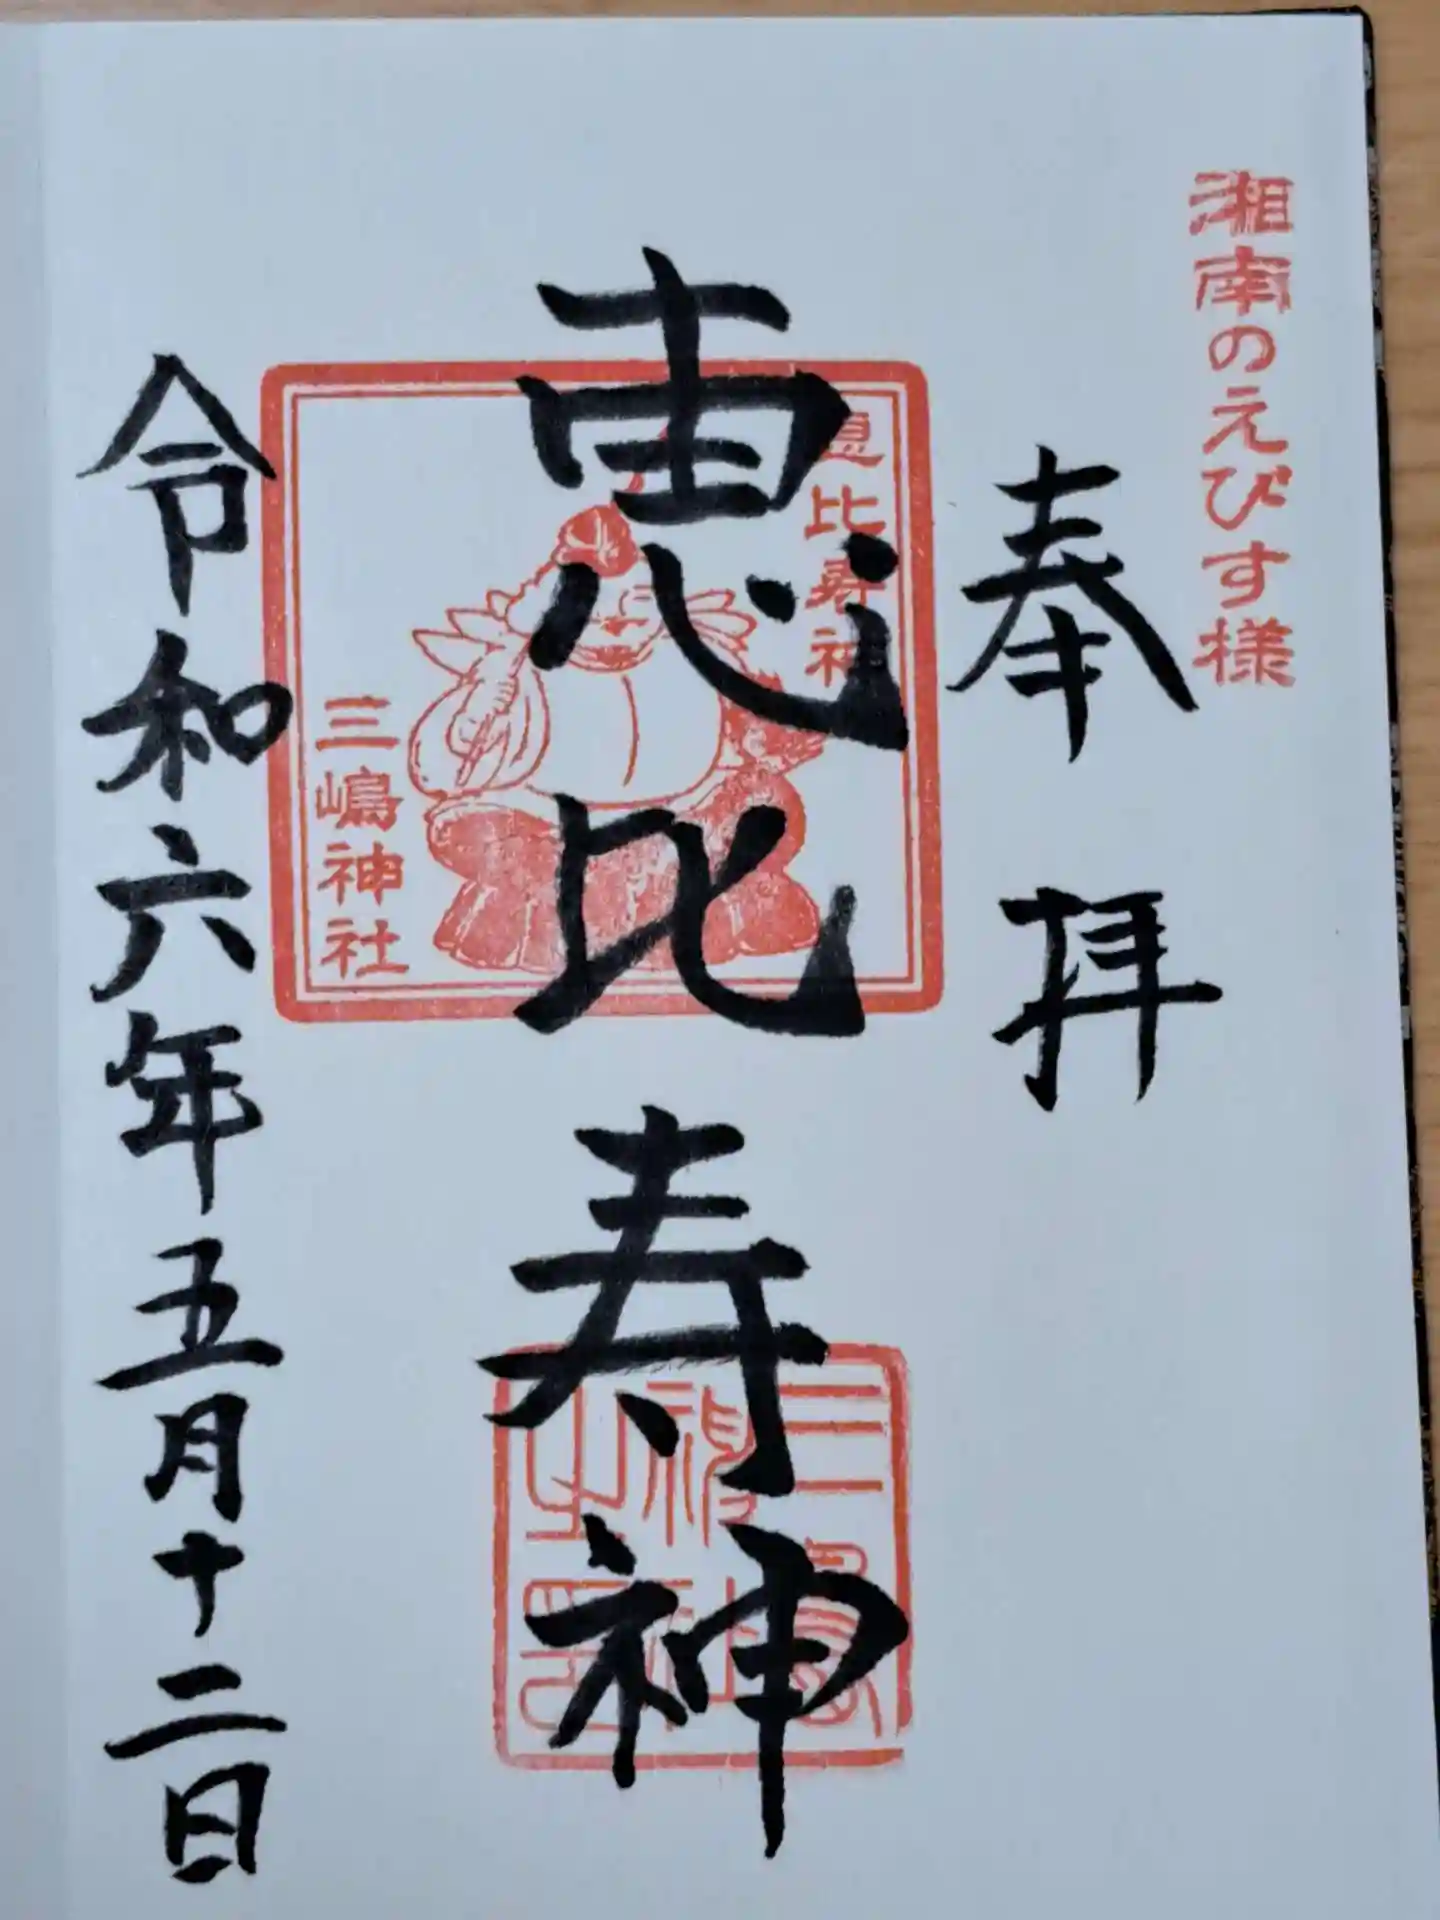 湘南のえびす様
奉拝
恵比寿神
恵比寿神
三嶋神社
三嶋神社之印
令和六年五月十二日